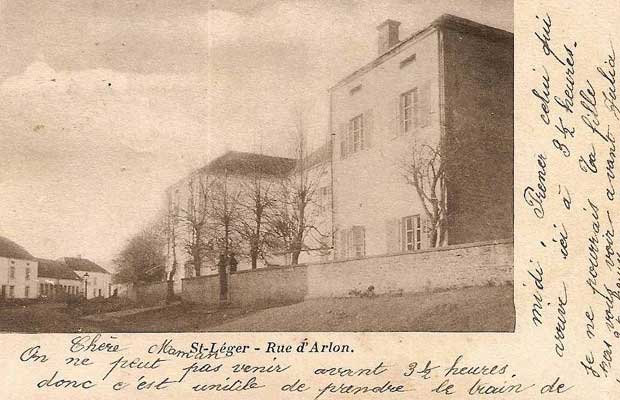 St-Léger - Rue d'Arlon.
Chère Maman
On ne peut pas venir avant 3½ heures.
donc c'est inutile de prendre le train de
midi. Prener celui qui
arrive ici à 3½ heures.
Je ne pourrais
pas vous voir avant
Ta fille
Julia